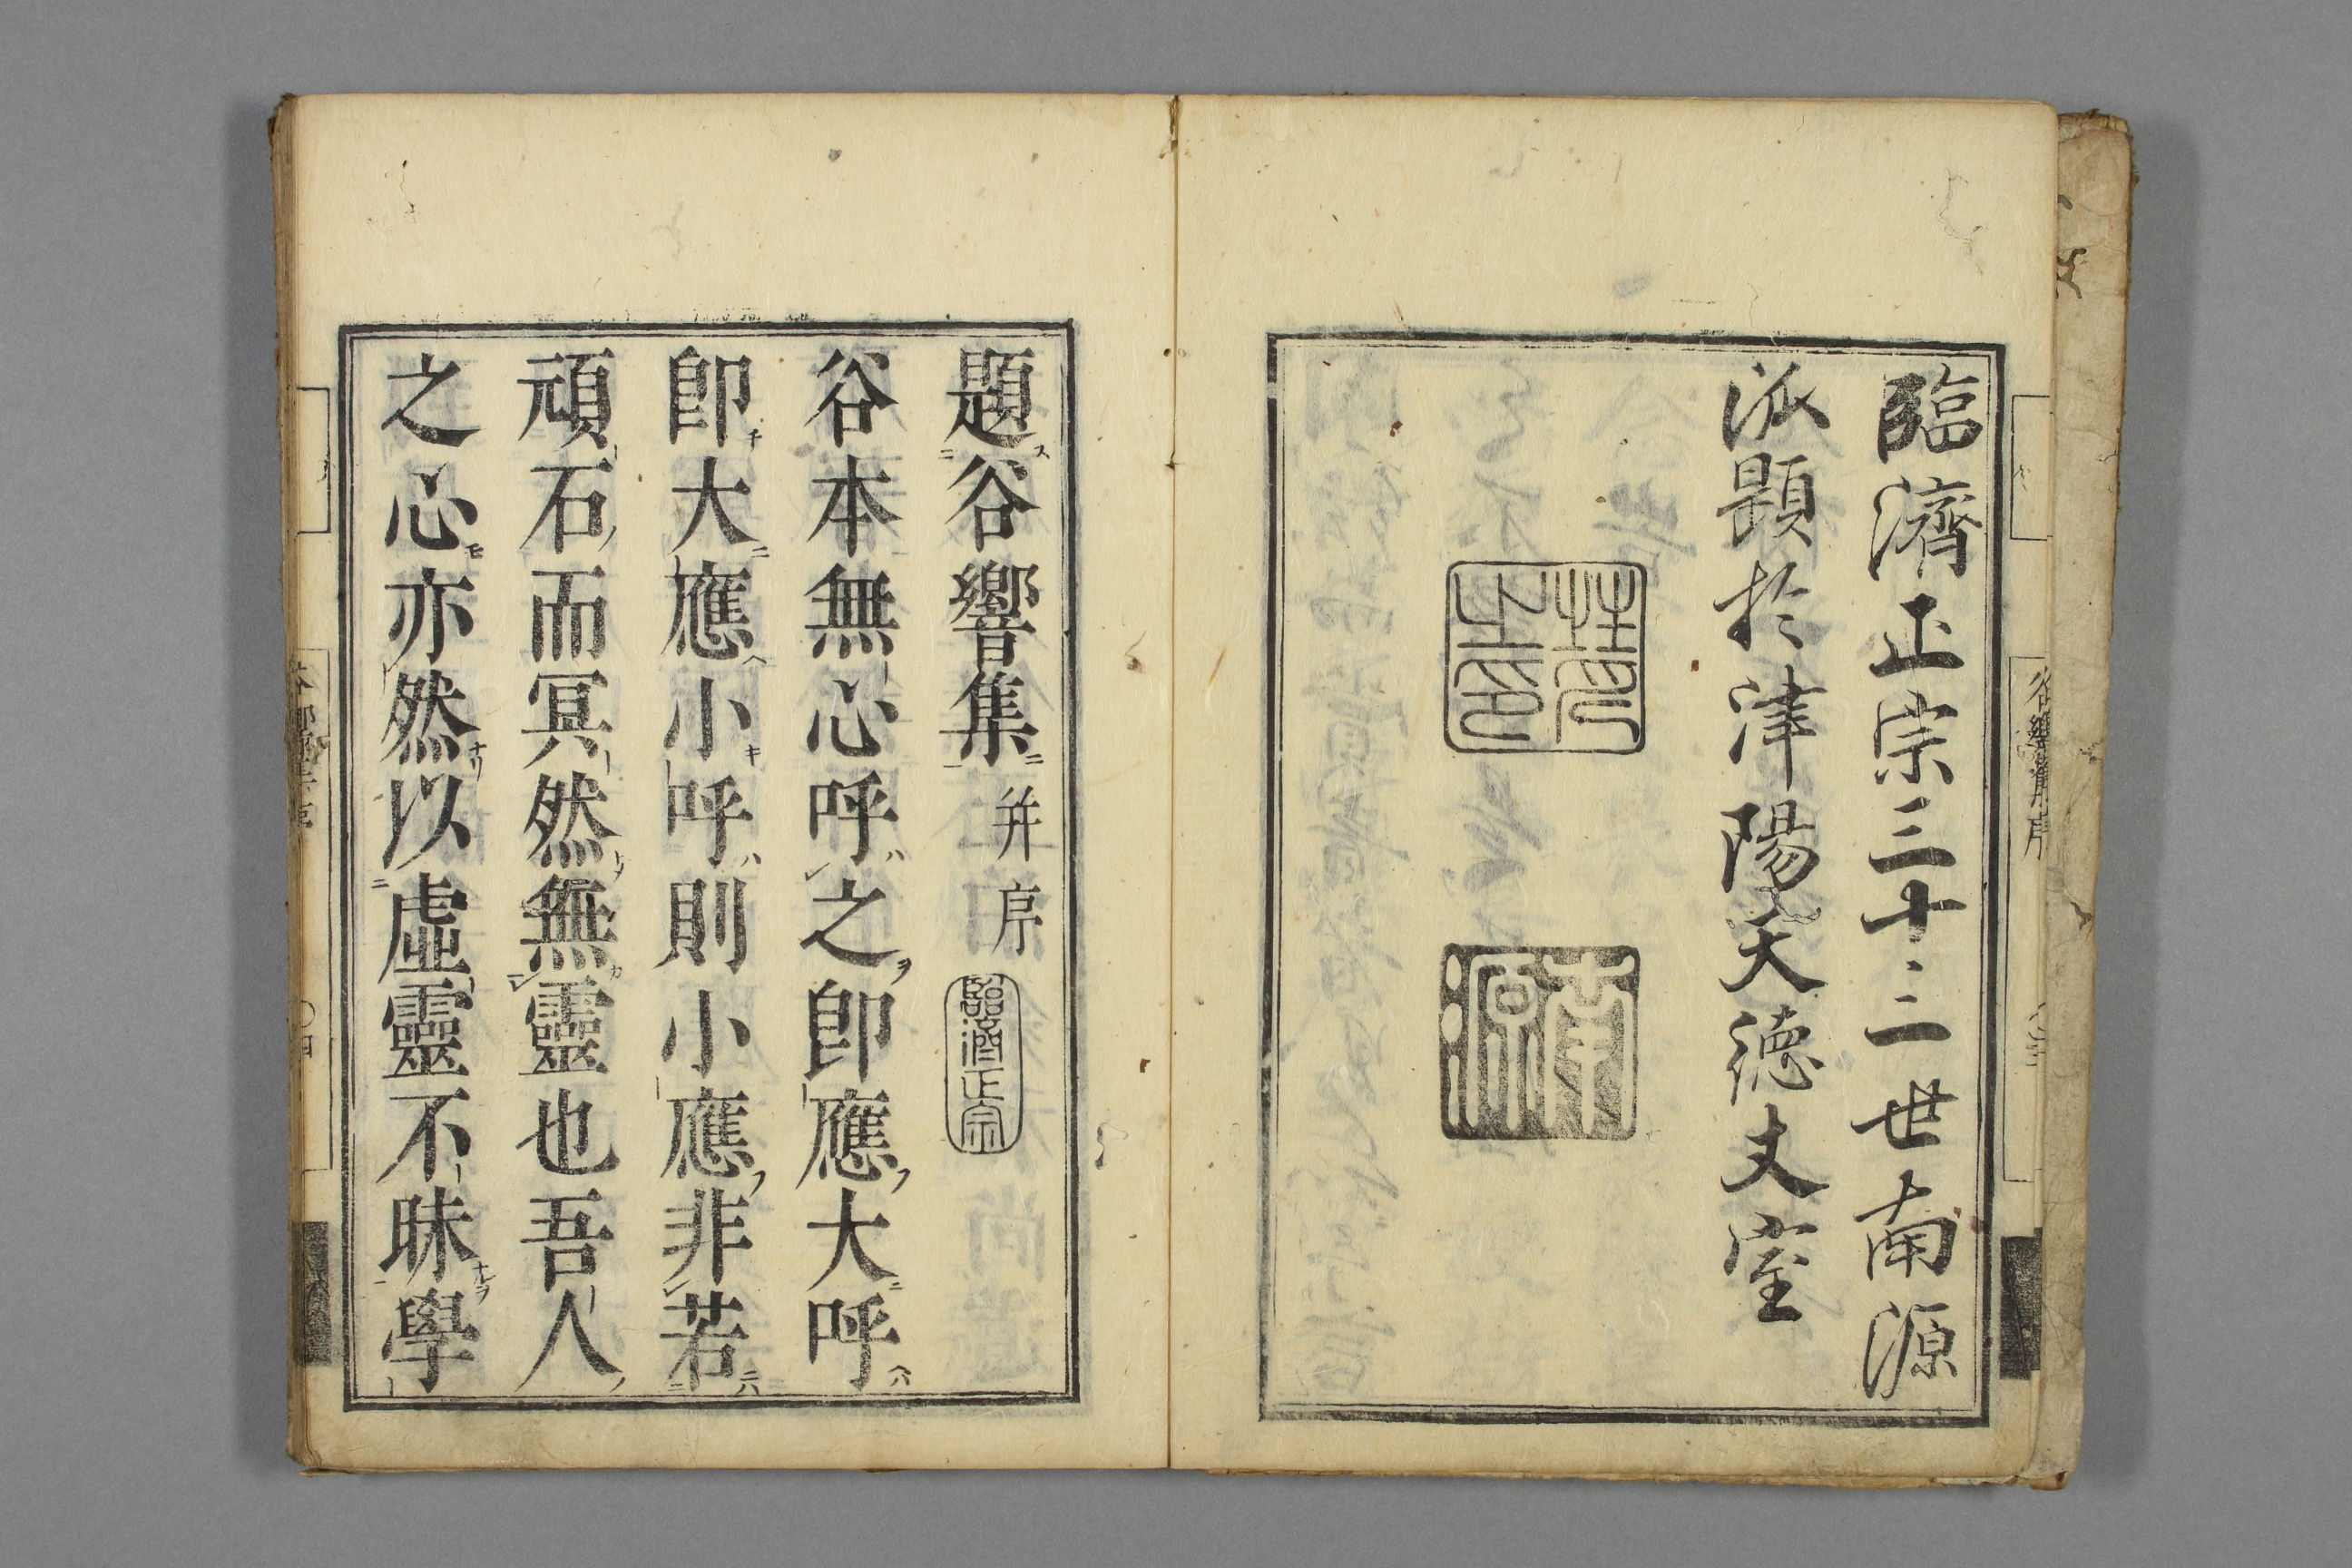 臨濟正宗三十三世南源
派題於津陽天德丈室
性派之印
南源
谷響集序
題谷響集 并序
臨濟正宗
谷本無心呼之即應大呼
即大應小呼則小應非若
頑石而冥然無靈也吾人
之心亦然以虛靈不昧學